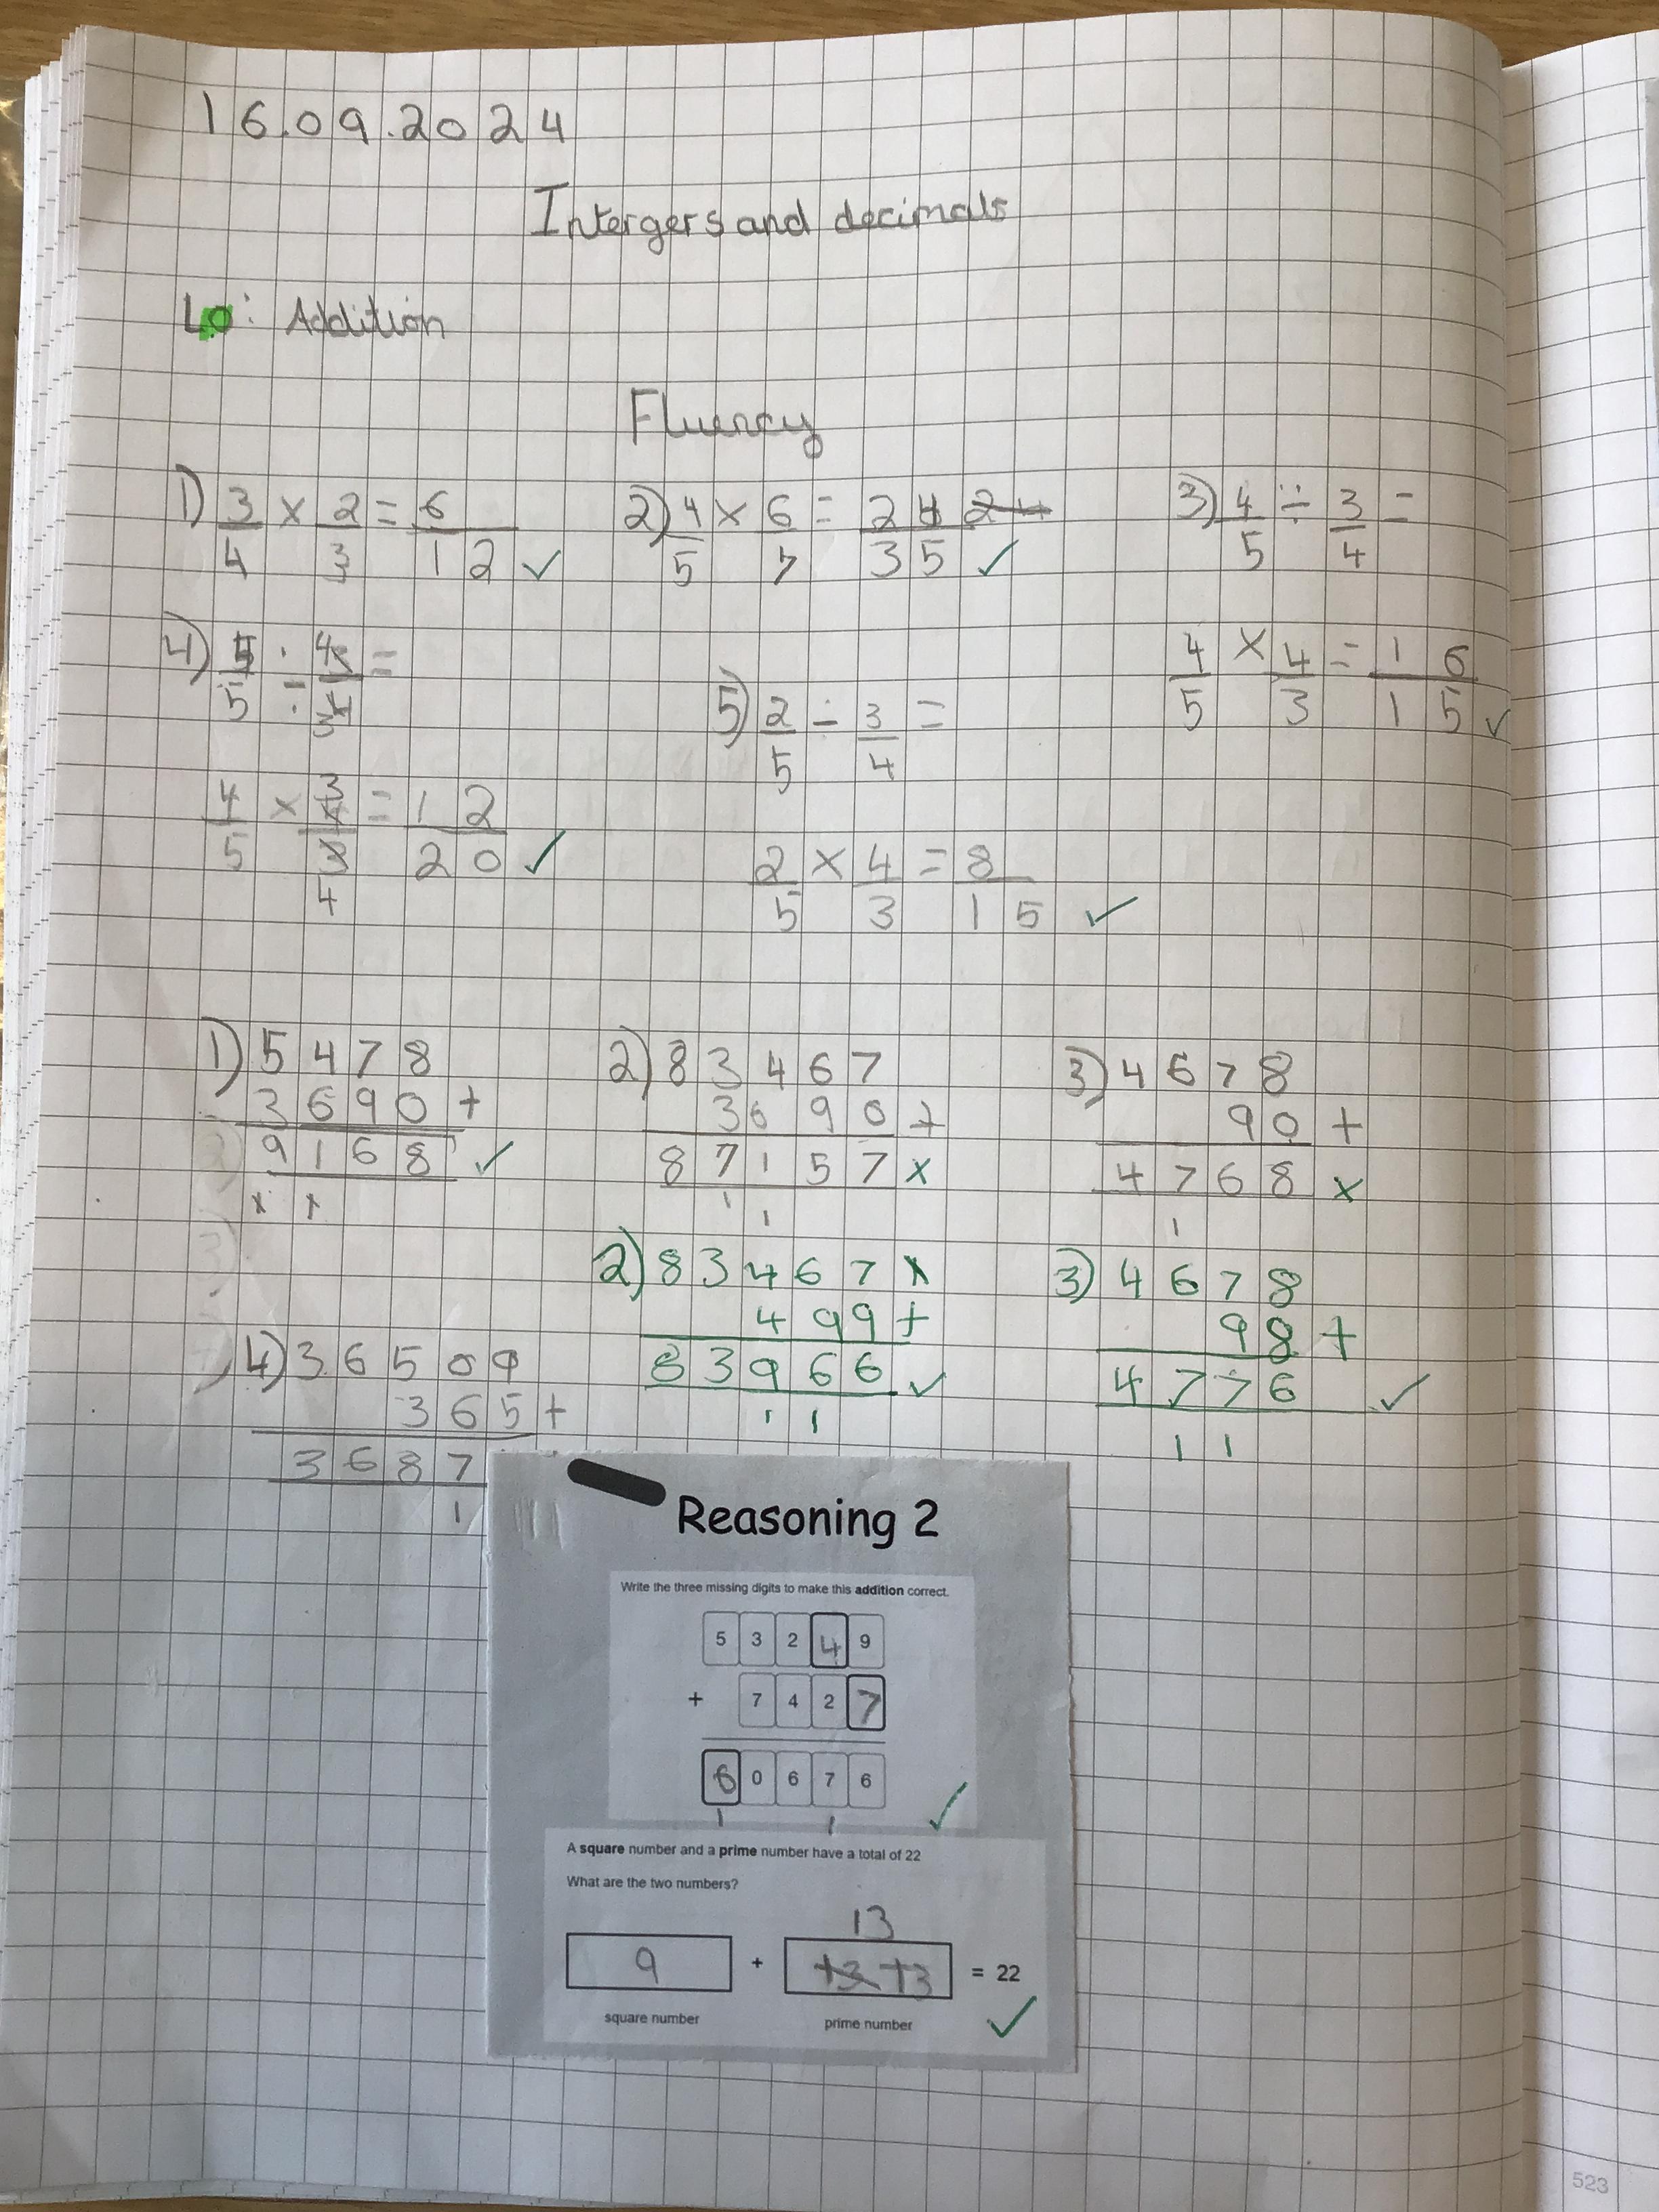 16.09.2024
Intergers and decimals
LO: Addition
Fluency
1) 3/4 × 2/3 = 6/12 ✓
2) 4/5 × 6/7 = 24/35 ✓
3) 4/5 ÷ 3/4 =
4/5 × 4/3 = 16/15 ✓
4) 4/5 ÷ 4/3 =
4/5 × 3/4 = 12/20 ✓
5) 2/5 ÷ 3/4 =
2/5 × 4/3 = 8/15 ✓
1) 5478
3690 +
9168 ✓
2) 83467
3690 +
87157 x
1 1
3) 4678
90 +
4768 x
1
2) 83467
499 +
83966 ✓
1 1
3) 4678
98 +
4776 ✓
1 1
4) 36509
365 +
3687
1
Reasoning 2
Write the three missing digits to make this addition correct.
5 3 2 4 9
+ 7 4 2 7
6 0 6 7 6 ✓
1 1
A square number and a prime number have a total of 22
What are the two numbers?
13
9 + 13 13 = 22
square number prime number ✓
523